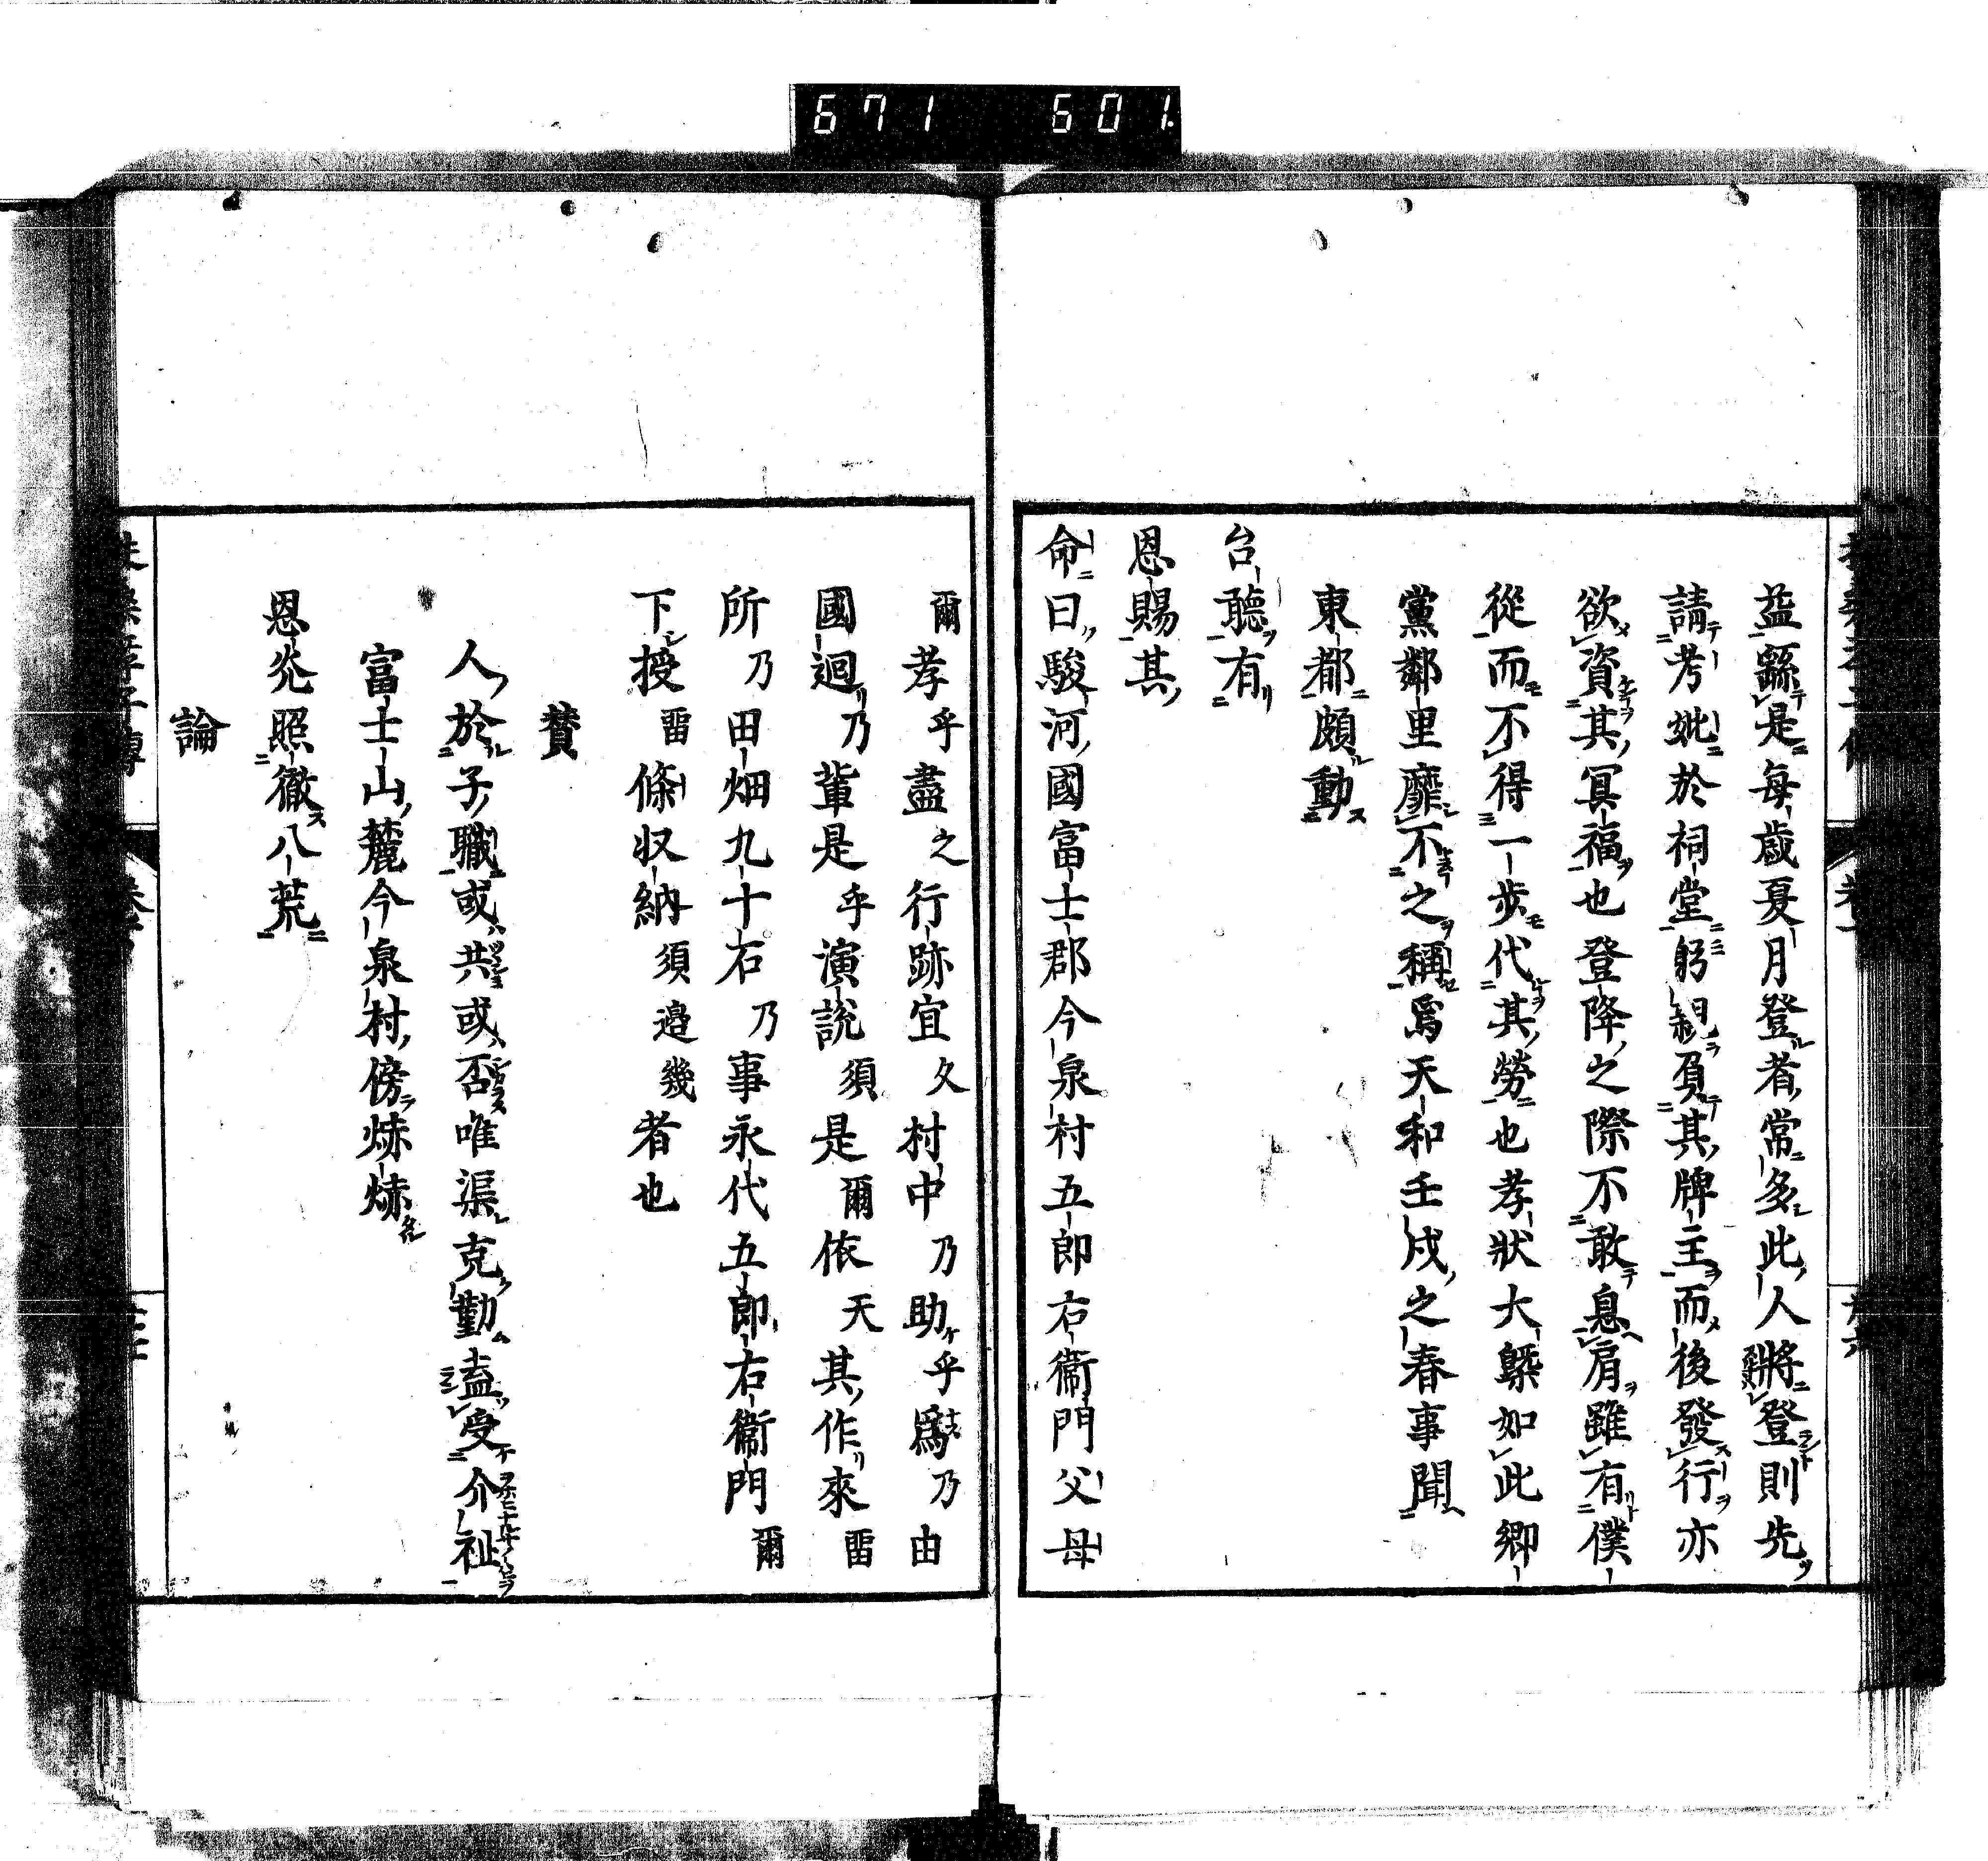 671 601
益繇是每歳夏月登者常多此人將登則先
請考妣於祠堂躬親負其牌主而後發行亦
欲資其冥福也登降之際不敢息肩雖有僕
從而不得一歩代其勞也孝狀大槩如此卿
黨鄰里靡不之稱爲天和壬戌之春事聞
東都頗動
台聽有
恩賜其
命曰駿河國富士郡今泉村五郎右衞門父母
爾孝乎盡之行跡宜久村中乃助乎爲乃由
國迴乃輩是乎演説須是爾依天其作來畱
所乃田畑九十石乃事永代五郎右衞門爾
下授畱條収納須邉幾者也
賛
人於子職或共或否唯渠克勤盍受介祉
富士山麓今泉村傍㷀㷀
恩灮照徹八荒
論